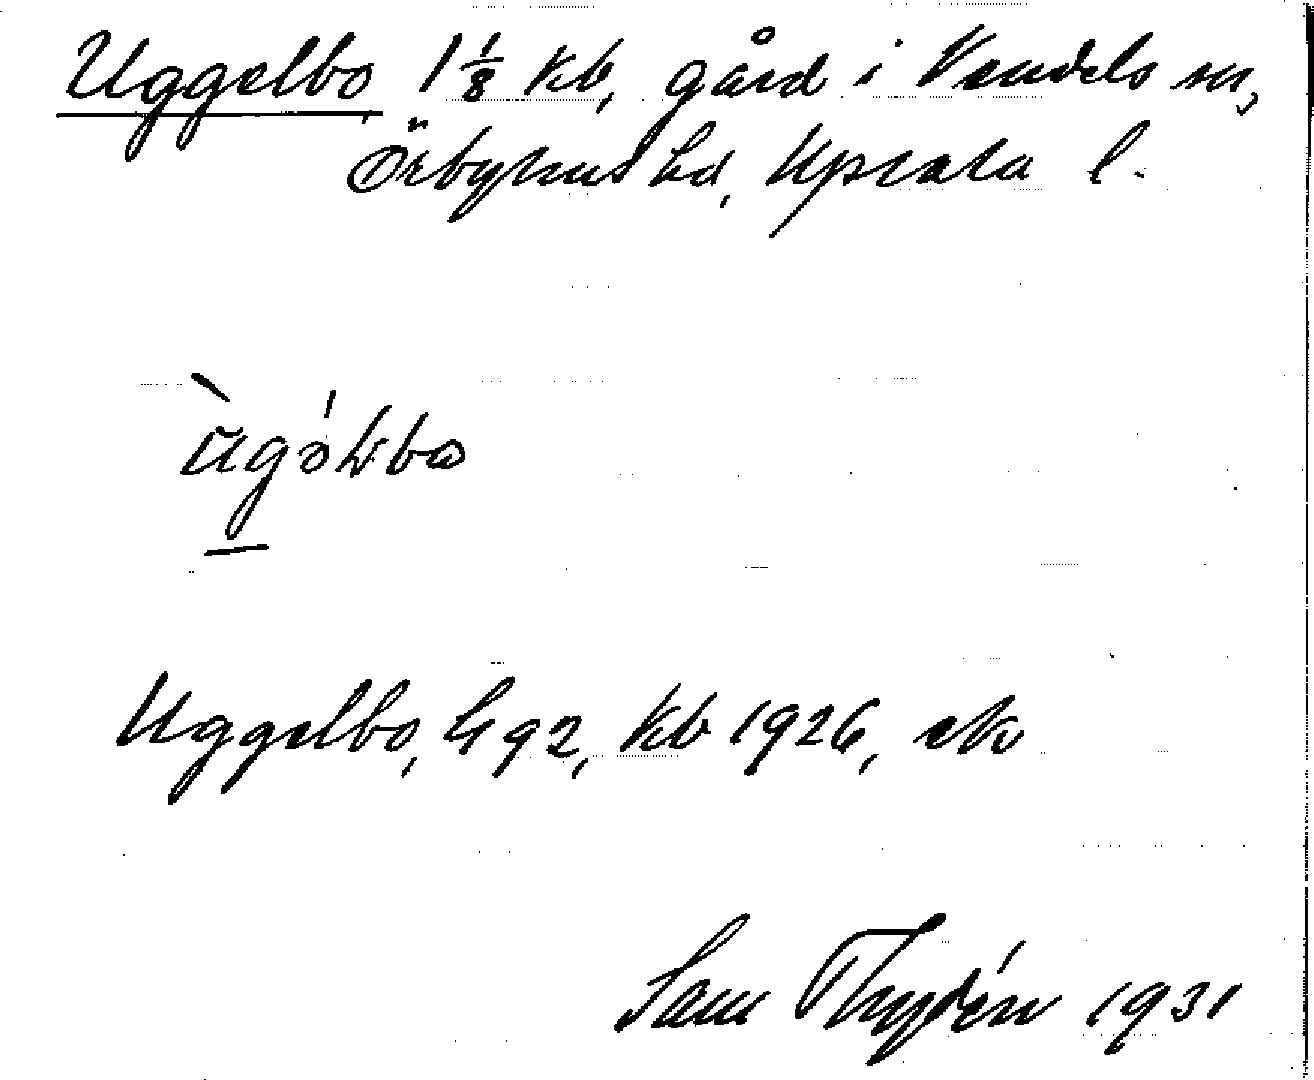 Uggelbo 1 1/8 kb, gård i Vendels sn,
Örbyhus hd, Upsala l.
Uggelbo, G 92, kb 1926, ek
Sam Thydén 1931